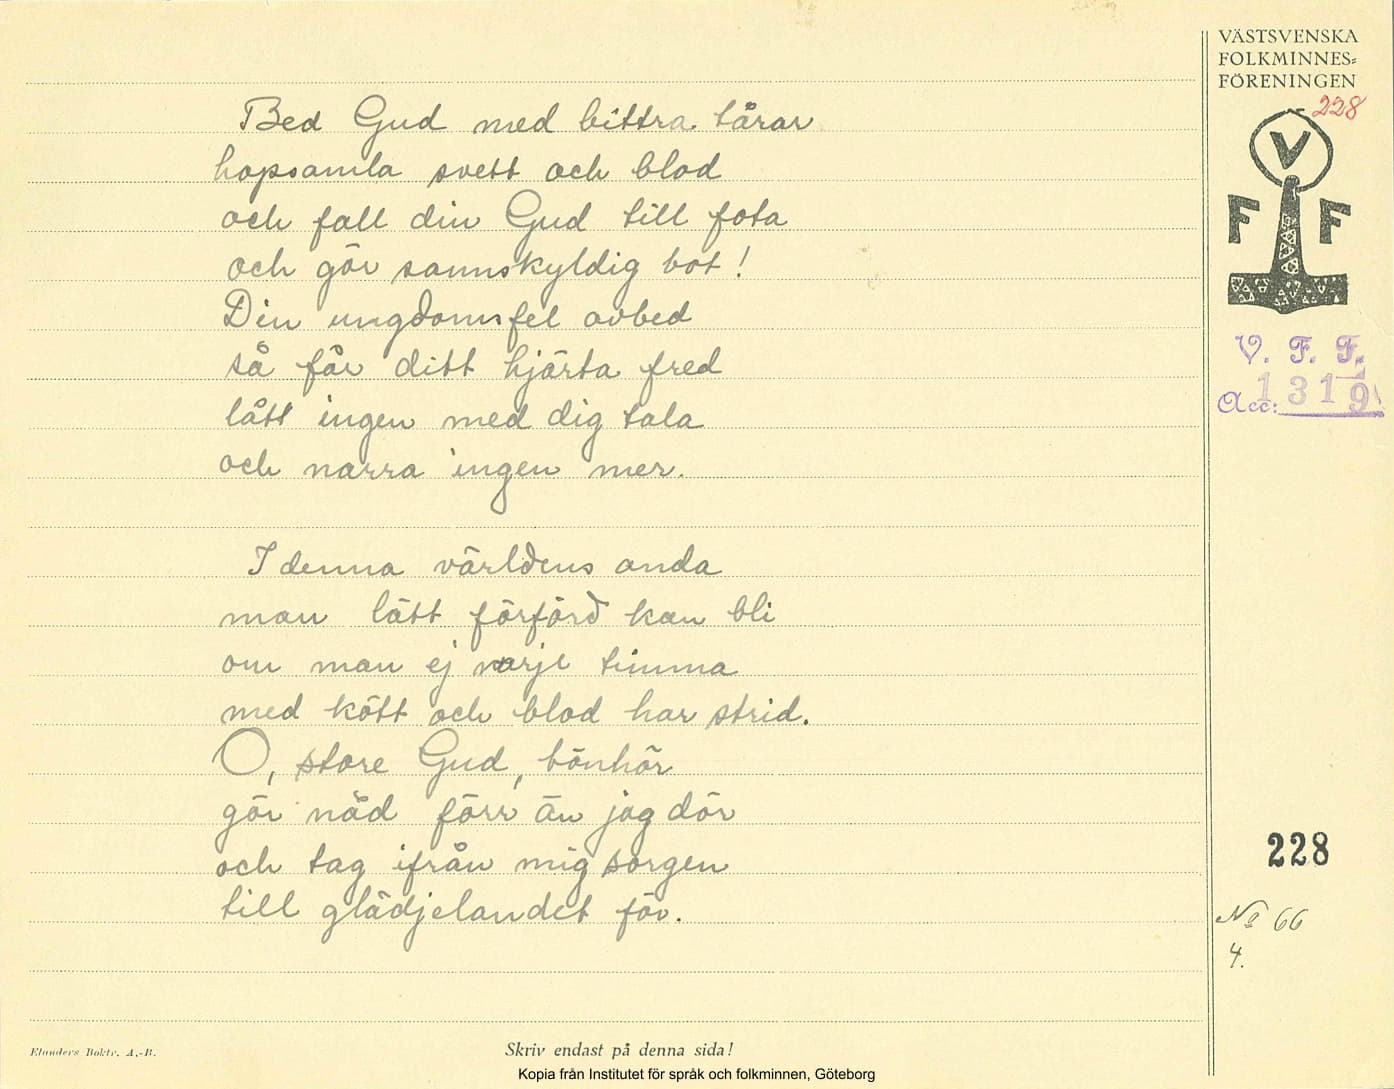 VÄSTSVENSKA
FOLKMINNES-
FÖRENINGEN
228
V
F F
V. F. F.
Acc: 1319
Bed Gud med bittra tårar
hopsamla svett och blod
och fall din Gud till fota
och gör sannskyldig bot!
Din ungdomsfel avbed
så får ditt hjärta fred
lått ingen med dig tala
och narra ingen mer.
I denna världens anda
man lätt förförd kan bli
om man ej varje timma
med kött och blod har strid.
O, store Gud, bönhör
gör nåd förr än jag dör
och tag ifrån mig sorgen
till glädjelandet för.
228
No 66
4.
Elanders Boktr. A.-B.
Skriv endast på denna sida!
Kopia från Institutet för språk och folkminnen, Göteborg